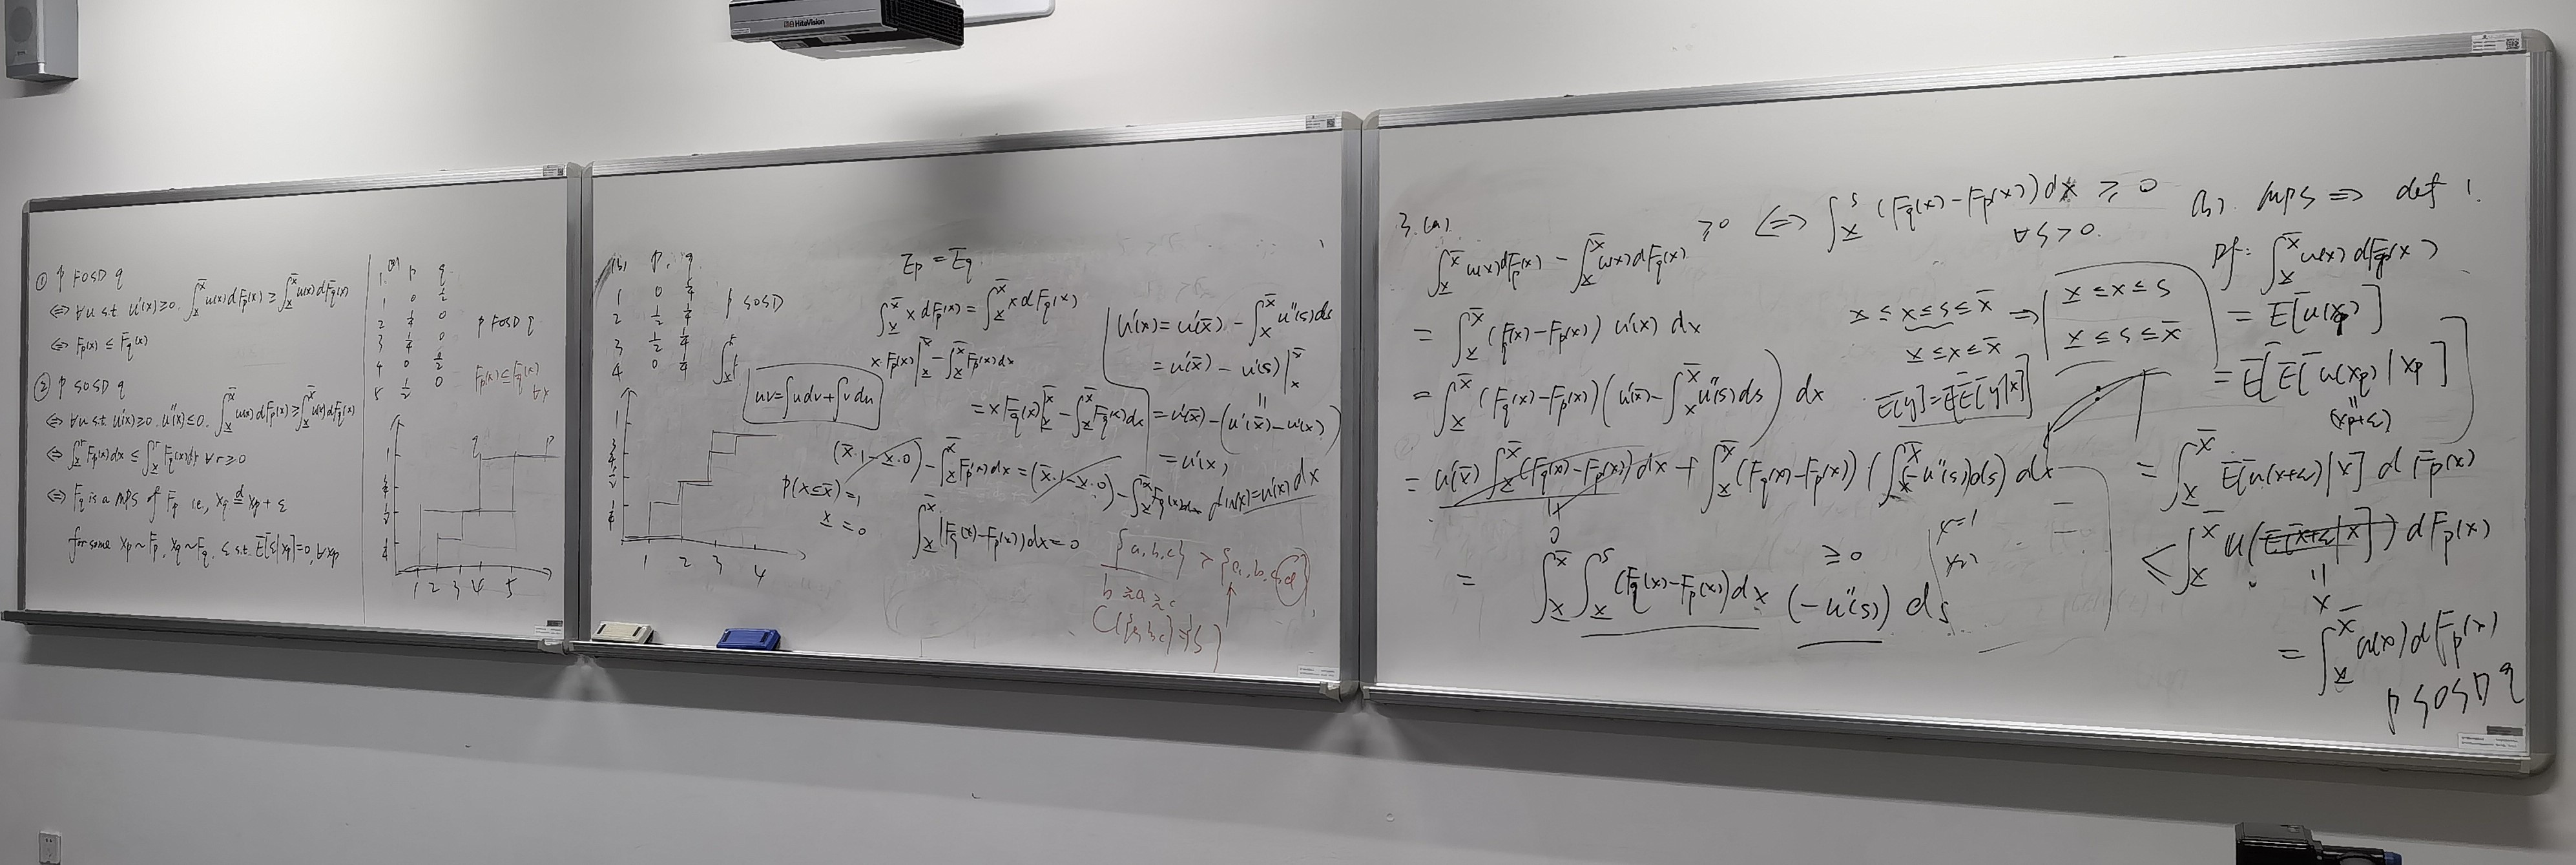 HiteVision
① p FOSD q
⇔ ∀u s.t. u'(x)≥0. ∫_x̲^x̄ u(x)dFp(x) ≥ ∫_x̲^x̄ u(x)dFq(x)
⇔ Fp(x) ≤ Fq(x)
② p SOSD q
⇔ ∀u s.t. u'(x)≥0. u''(x)≤0. ∫_x̲^x̄ u(x)dFp(x) ≥ ∫_x̲^x̄ u(x)dFq(x)
⇔ ∫_x̲^r Fp(x)dx ≤ ∫_x̲^r Fq(x)dx ∀r≥0
⇔ Fq is a MPS of Fp i.e., xq =^d xp + ε
for some xp~Fp, xq~Fq. ε s.t. E[ε|xp]=0, ∀xp
p q
1 0 1/2
2 1/4 0
3 1/4 0
4 0 1/2
5 1/2 0
p FOSD q
Fp(x)≤Fq(x)
∀x
q p
1 2 3 4 5
(b) p. q
1 0 1/4
2 1/2 1/4
3 1/2 1/4
4 0 1/4
p SOSD
1 2 3 4
Ep = Eq
∫_x̲^x̄ x dFp(x) = ∫_x̲^x̄ x dFq(x)
x·Fp(x)|_x̲^x̄ - ∫_x̲^x̄ Fp(x)dx
uv=∫udv+∫vdu
= x Fq(x)|_x̲^x̄ - ∫_x̲^x̄ Fq(x)dx
(x̄·1-x̲·0) - ∫_x̲^x̄ Fp(x)dx = (x̄·1-x̲·0) - ∫_x̲^x̄ Fq(x)dx
p(x≤x̄)=1
x̲ = 0
∫_x̲^x̄ (Fq(x)-Fp(x))dx=0
u'(x) = u'(x̄) - ∫_x^x̄ u''(s)ds
= u'(x̄) - u'(s)|_x^x̄
= u'(x̄) - (u'(x̄)-u'(x))
= u'(x),
du(x)=u'(x)dx
{a,b,c} > {a,b,c,d}
b ≿ a ≿ c
3.(a).
∫_x̲^x̄ u(x)dFp(x) - ∫_x̲^x̄ u(x)dFq(x) ≥0 ⇔ ∫_x̲^s (Fq(x)-Fp(x))dx ≥ 0
∀s>0.
= ∫_x̲^x̄ (Fq(x)-Fp(x)) u'(x) dx
= ∫_x̲^x̄ (Fq(x)-Fp(x)) (u'(x̄) - ∫_x^x̄ u''(s)ds) dx
= u'(x̄) ∫_x̲^x̄ (Fq(x)-Fp(x))dx + ∫_x̲^x̄ (Fq(x)-Fp(x)) (∫_x^x̄ -u''(s)ds) dx
0
= ∫_x̲^x̄ ∫_x̲^s (Fq(x)-Fp(x))dx (-u''(s)) ds
≥0
x̲ ≤ x ≤ s ≤ x̄ ⇒
x̲ ≤ x ≤ x̄
x̲ ≤ x ≤ s
x̲ ≤ s ≤ x̄
E[y]=E[E[y|x]]
x=1
(b). MPS ⇒ def 1.
pf: ∫_x̲^x̄ u(x) dFq(x)
= E[u(xq)]
= E[E[u(xq)|xp]
(xp+ε)
= ∫_x̲^x̄ E[u(x+ε)|x] dFp(x)
≤ ∫_x̲^x̄ u(E[x+ε|x]) dFp(x)
x
= ∫_x̲^x̄ u(x)dFp(x)
p SOSD q